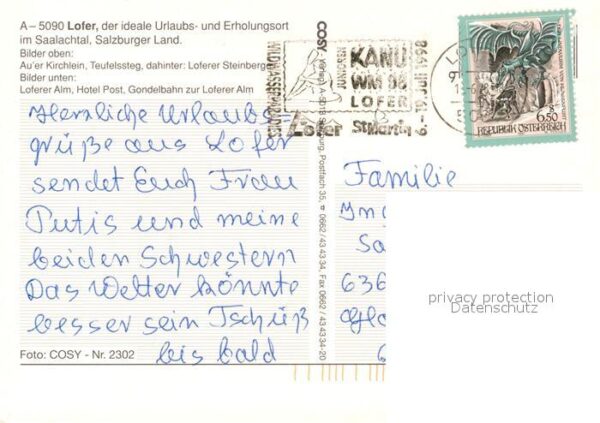 A– 5090 Lofer, der ideale Urlaubs- und Erholungsort
im Saalachtal, Salzburger Land.
Bilder oben:
Au'er Kirchlein, Teufelssteg, dahinter: Loferer Steinberge
Bilder unten:
Loferer Alm, Hotel Post, Gondelbahn zur Loferer Alm
Herzliche Urlaubs=
grüße aus Lofer
sendet Euch Frau
Putis und meine
beiden Schwestern
Das Wetter könnte
besser sein Tschüß
bis bald
Foto: COSY - Nr. 2302
WILDWASSERPARADIES
Lofer St. Martin
JUNIOREN
KANU
WM 98
LOFER
COSY
Postfach 35, 0662/43 43 34, Fax 0662/43 43 34-20
6.50
REPUBLIK ÖSTERREICH
Familie
636
privacy protection
Datenschutz